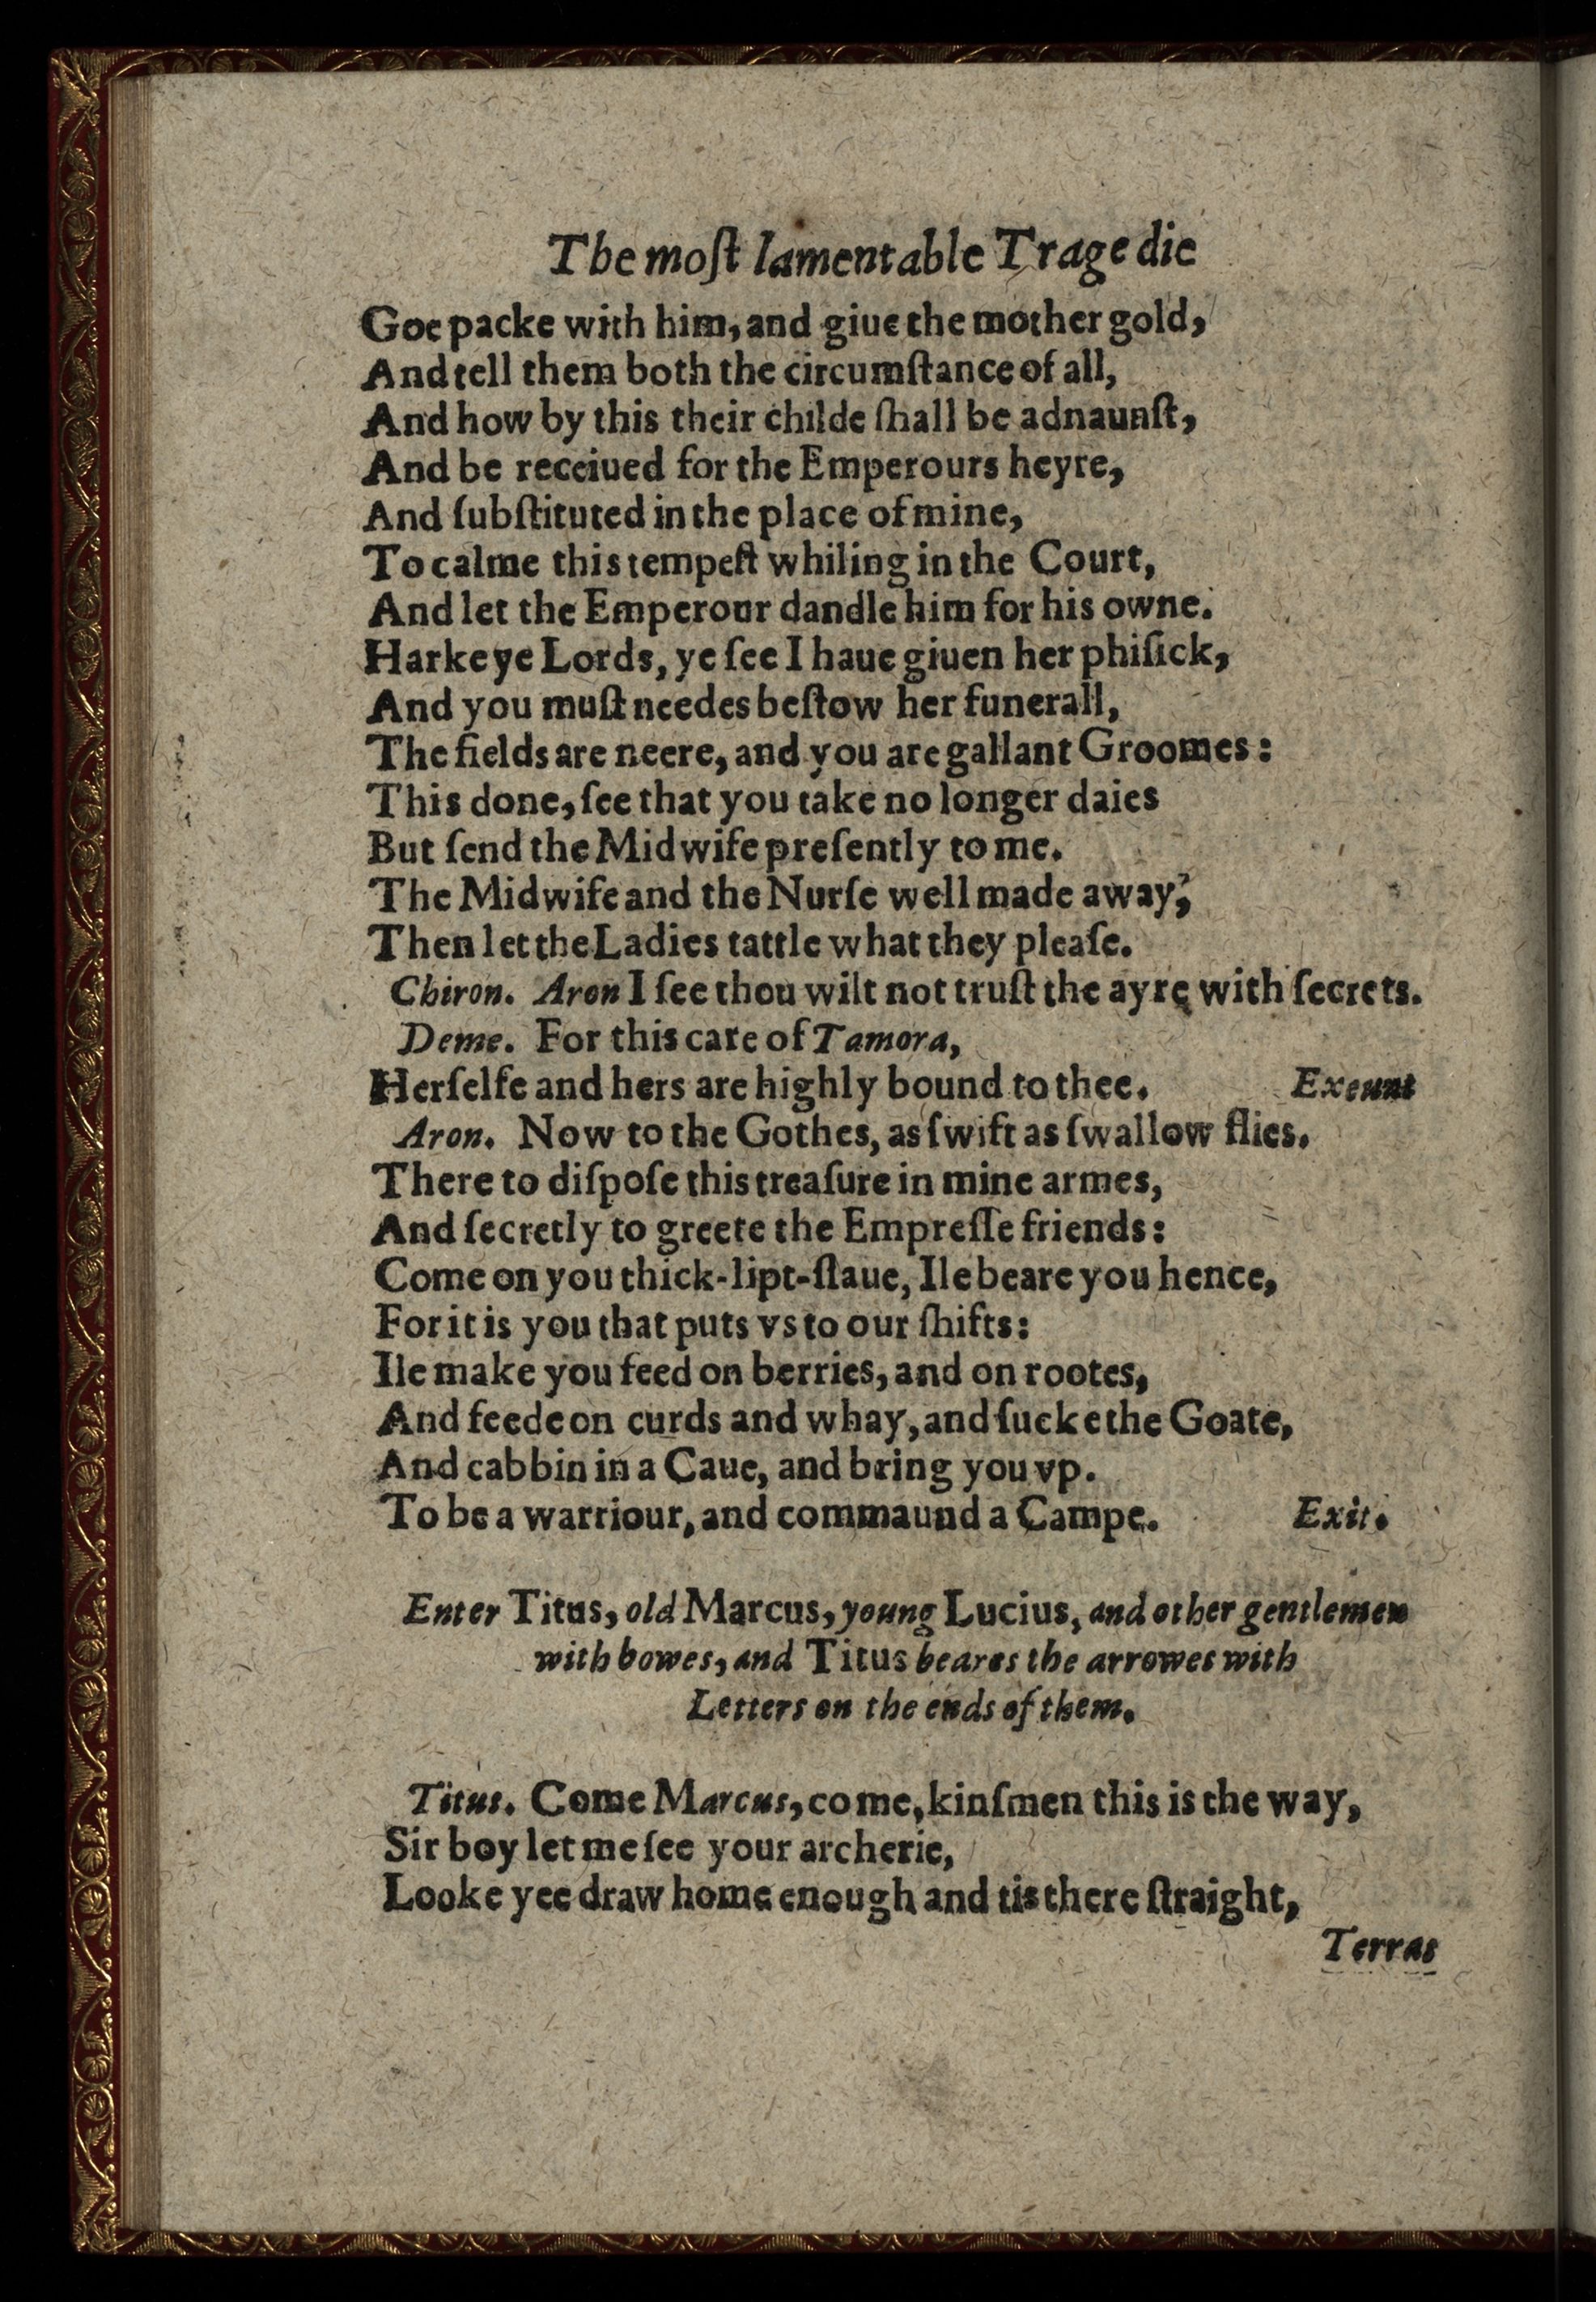 The moſt lamentable Tragedie
Goe packe with him, and giue the mother gold,
And tell them both the circumſtance of all,
And how by this their childe ſhall be adnaunſt,
And be receiued for the Emperours heyre,
And ſubſtituted in the place of mine,
To calme this tempeſt whiling in the Court,
And let the Emperour dandle him for his owne.
Harke ye Lords, ye ſee I haue giuen her phiſick,
And you muſt needes beſtow her funerall,
The fields are neere, and you are gallant Groomes:
This done, ſee that you take no longer daies
But ſend the Midwife preſently to me.
The Midwife and the Nurſe well made away,
Then let the Ladies tattle what they pleaſe.
Chiron. Aron I ſee thou wilt not truſt the ayre with ſecrets.
Deme. For this care of Tamora,
Herſelfe and hers are highly bound to thee. Exeunt
Aron. Now to the Gothes, as ſwift as ſwallow flies.
There to diſpoſe this treaſure in mine armes,
And ſecretly to greete the Empreſſe friends:
Come on you thick-lipt-ſlaue, Ile beare you hence,
For it is you that puts vs to our ſhifts:
Ile make you feed on berries, and on rootes,
And feede on curds and whay, and ſucke the Goate,
And cabbin in a Caue, and bring you vp.
To be a warriour, and commaund a Campe. Exit.
Enter Titus, old Marcus, young Lucius, and other gentlemen
with bowes, and Titus beares the arrowes with
Letters on the ends of them.
Titus. Come Marcus, come, kinſmen this is the way,
Sir boy let me ſee your archerie,
Looke yee draw home enough and tis there ſtraight,
Terras